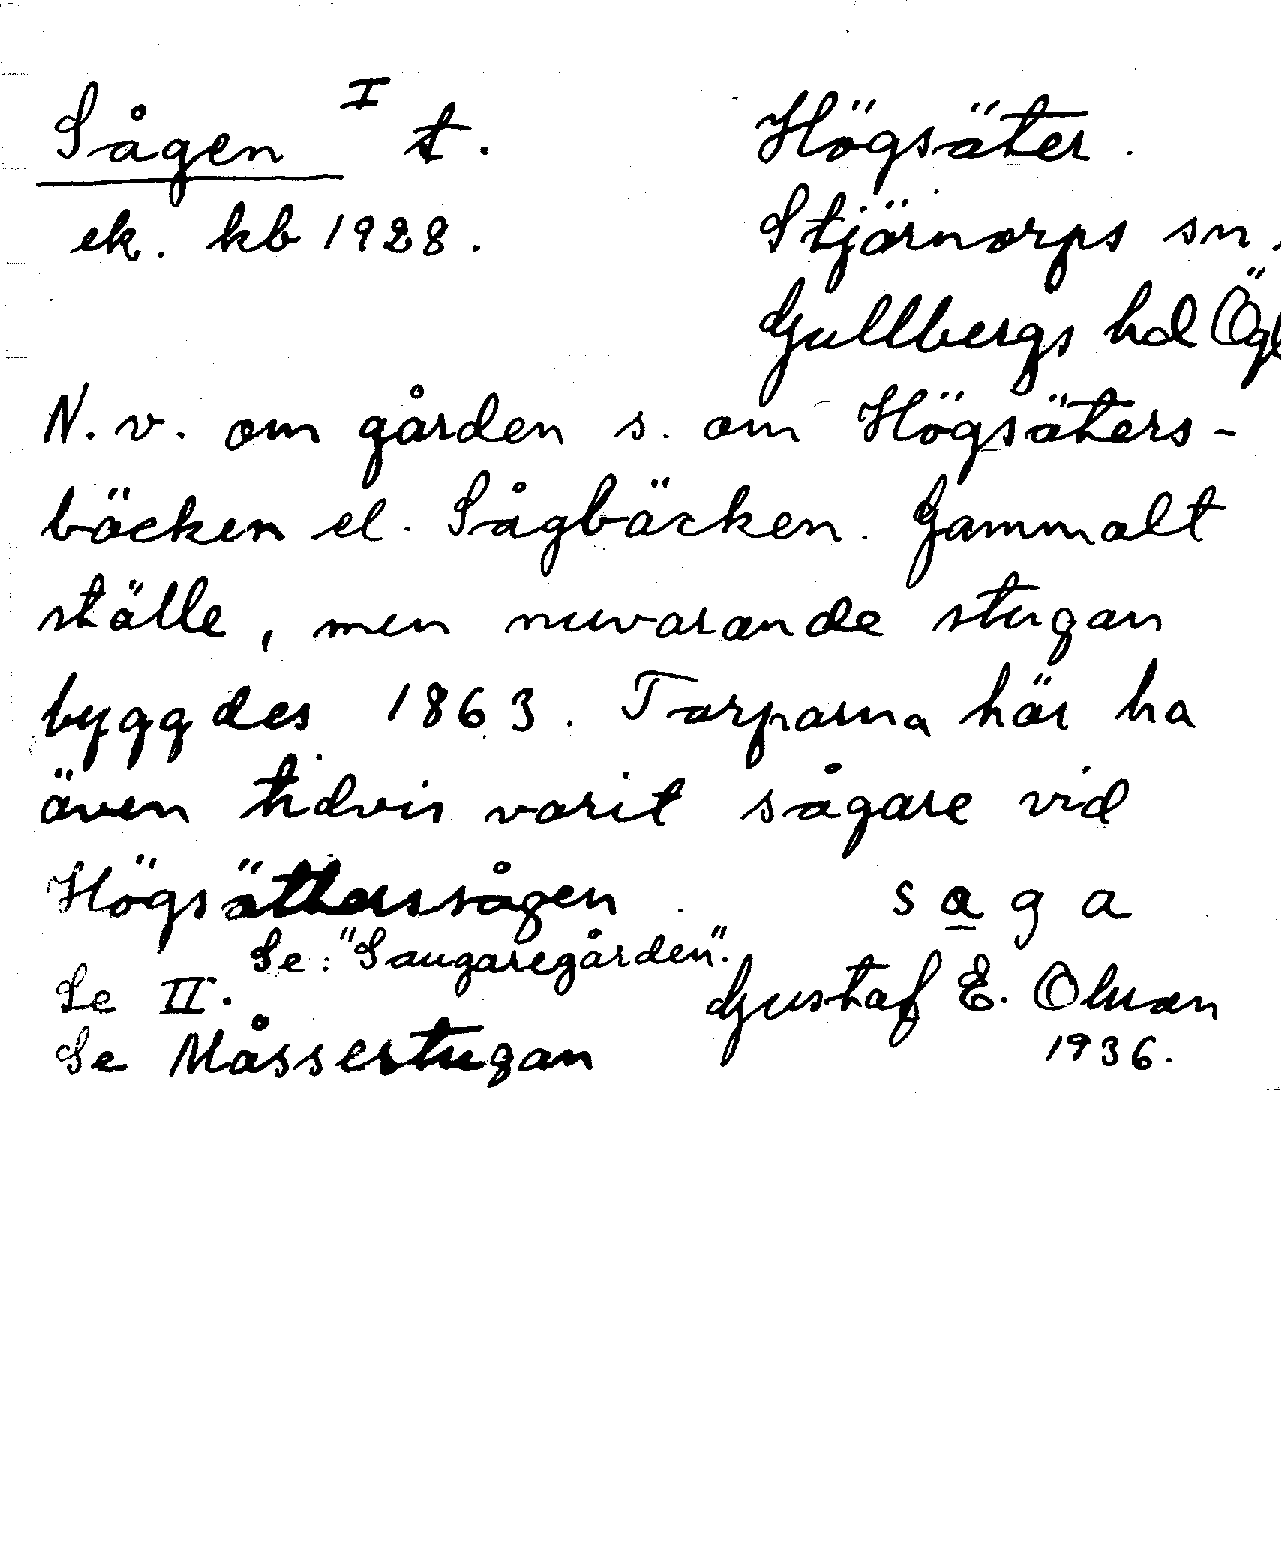 Sågen I t.
ek. kb 1928.
Högsäter.
Stjärnorps sn.
Gullbergs hd Ögl
N.v. om gården s. om Högsäters-
bäcken el. Sågbäcken. Gammalt
ställe, men nuvarande stugan
byggdes 1863. Torparna här ha
även tidvis varit sågare vid
Högsätersågen. saga
Se: "Saugaregården".
Se II.
Gustaf E. Olsson
Se Måssestugan
1936.